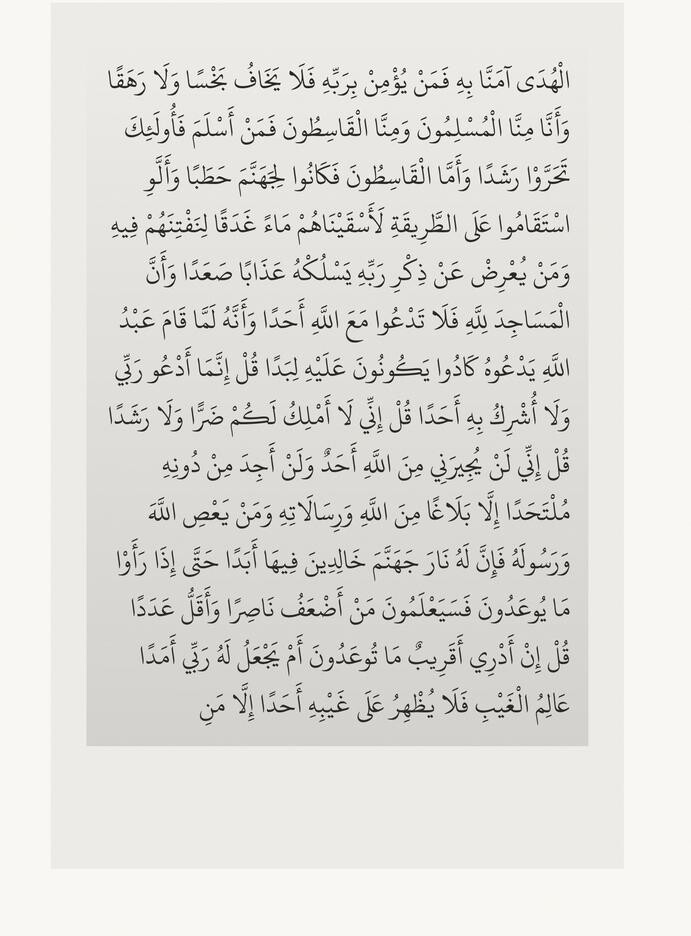 الْهُدَى آمَنَّا بِهِ فَمَنْ يُؤْمِنْ بِرَبِّهِ فَلَا يَخَافُ بَخْسًا وَلَا رَهَقًا
وَأَنَّا مِنَّا الْمُسْلِمُونَ وَمِنَّا الْقَاسِطُونَ فَمَنْ أَسْلَمَ فَأُولَئِكَ
تَحَرَّوْا رَشَدًا وَأَمَّا الْقَاسِطُونَ فَكَانُوا لِجَهَنَّمَ حَطَبًا وَأَلَّوِ
اسْتَقَامُوا عَلَى الطَّرِيقَةِ لَأَسْقَيْنَاهُمْ مَاءً غَدَقًا لِنَفْتِنَهُمْ فِيهِ
وَمَنْ يُعْرِضْ عَنْ ذِكْرِ رَبِّهِ يَسْلُكْهُ عَذَابًا صَعَدًا وَأَنَّ
الْمَسَاجِدَ لِلَّهِ فَلَا تَدْعُوا مَعَ اللَّهِ أَحَدًا وَأَنَّهُ لَمَّا قَامَ عَبْدُ
اللَّهِ يَدْعُوهُ كَادُوا يَكُونُونَ عَلَيْهِ لِبَدًا قُلْ إِنَّمَا أَدْعُو رَبِّي
وَلَا أُشْرِكُ بِهِ أَحَدًا قُلْ إِنِّي لَا أَمْلِكُ لَكُمْ ضَرًّا وَلَا رَشَدًا
قُلْ إِنِّي لَنْ يُجِيرَنِي مِنَ اللَّهِ أَحَدٌ وَلَنْ أَجِدَ مِنْ دُونِهِ
مُلْتَحَدًا إِلَّا بَلَاغًا مِنَ اللَّهِ وَرِسَالَاتِهِ وَمَنْ يَعْصِ اللَّهَ
وَرَسُولَهُ فَإِنَّ لَهُ نَارَ جَهَنَّمَ خَالِدِينَ فِيهَا أَبَدًا حَتَّى إِذَا رَأَوْا
مَا يُوعَدُونَ فَسَيَعْلَمُونَ مَنْ أَضْعَفُ نَاصِرًا وَأَقَلُّ عَدَدًا
قُلْ إِنْ أَدْرِي أَقَرِيبٌ مَا تُوعَدُونَ أَمْ يَجْعَلُ لَهُ رَبِّي أَمَدًا
عَالِمُ الْغَيْبِ فَلَا يُظْهِرُ عَلَى غَيْبِهِ أَحَدًا إِلَّا مَنِ